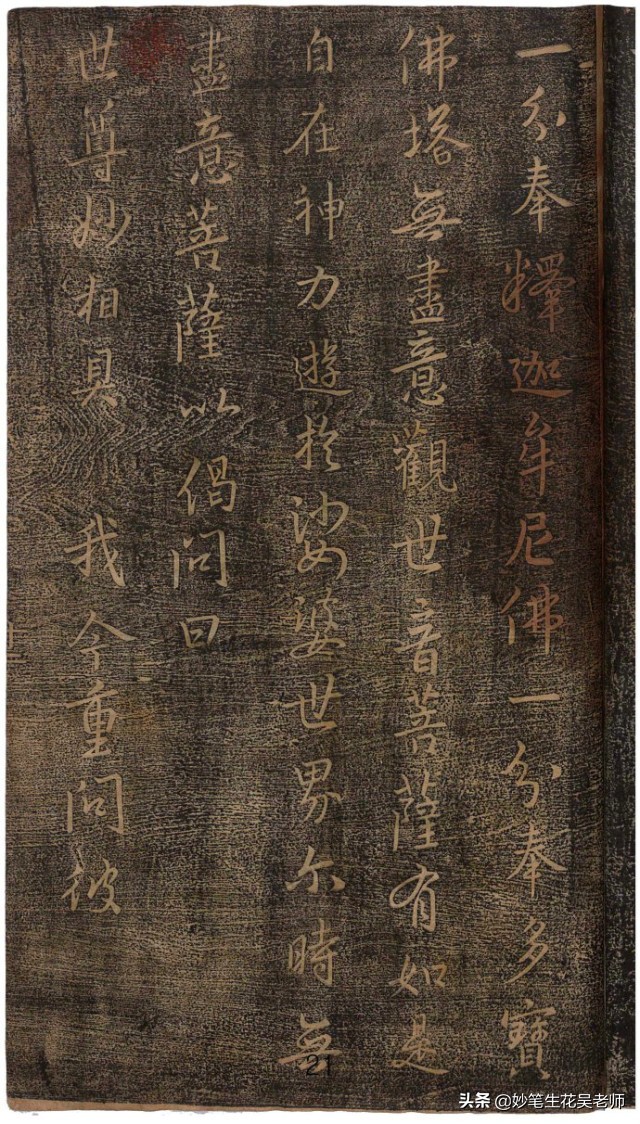 一分奉釋迦牟尼佛一分奉多寶
佛塔無盡意觀世音菩薩有如是
自在神力遊於娑婆世界尒時無
盡意菩薩以偈問曰
世尊妙相具 我今重問彼
21
头条 @妙笔生花吴老师